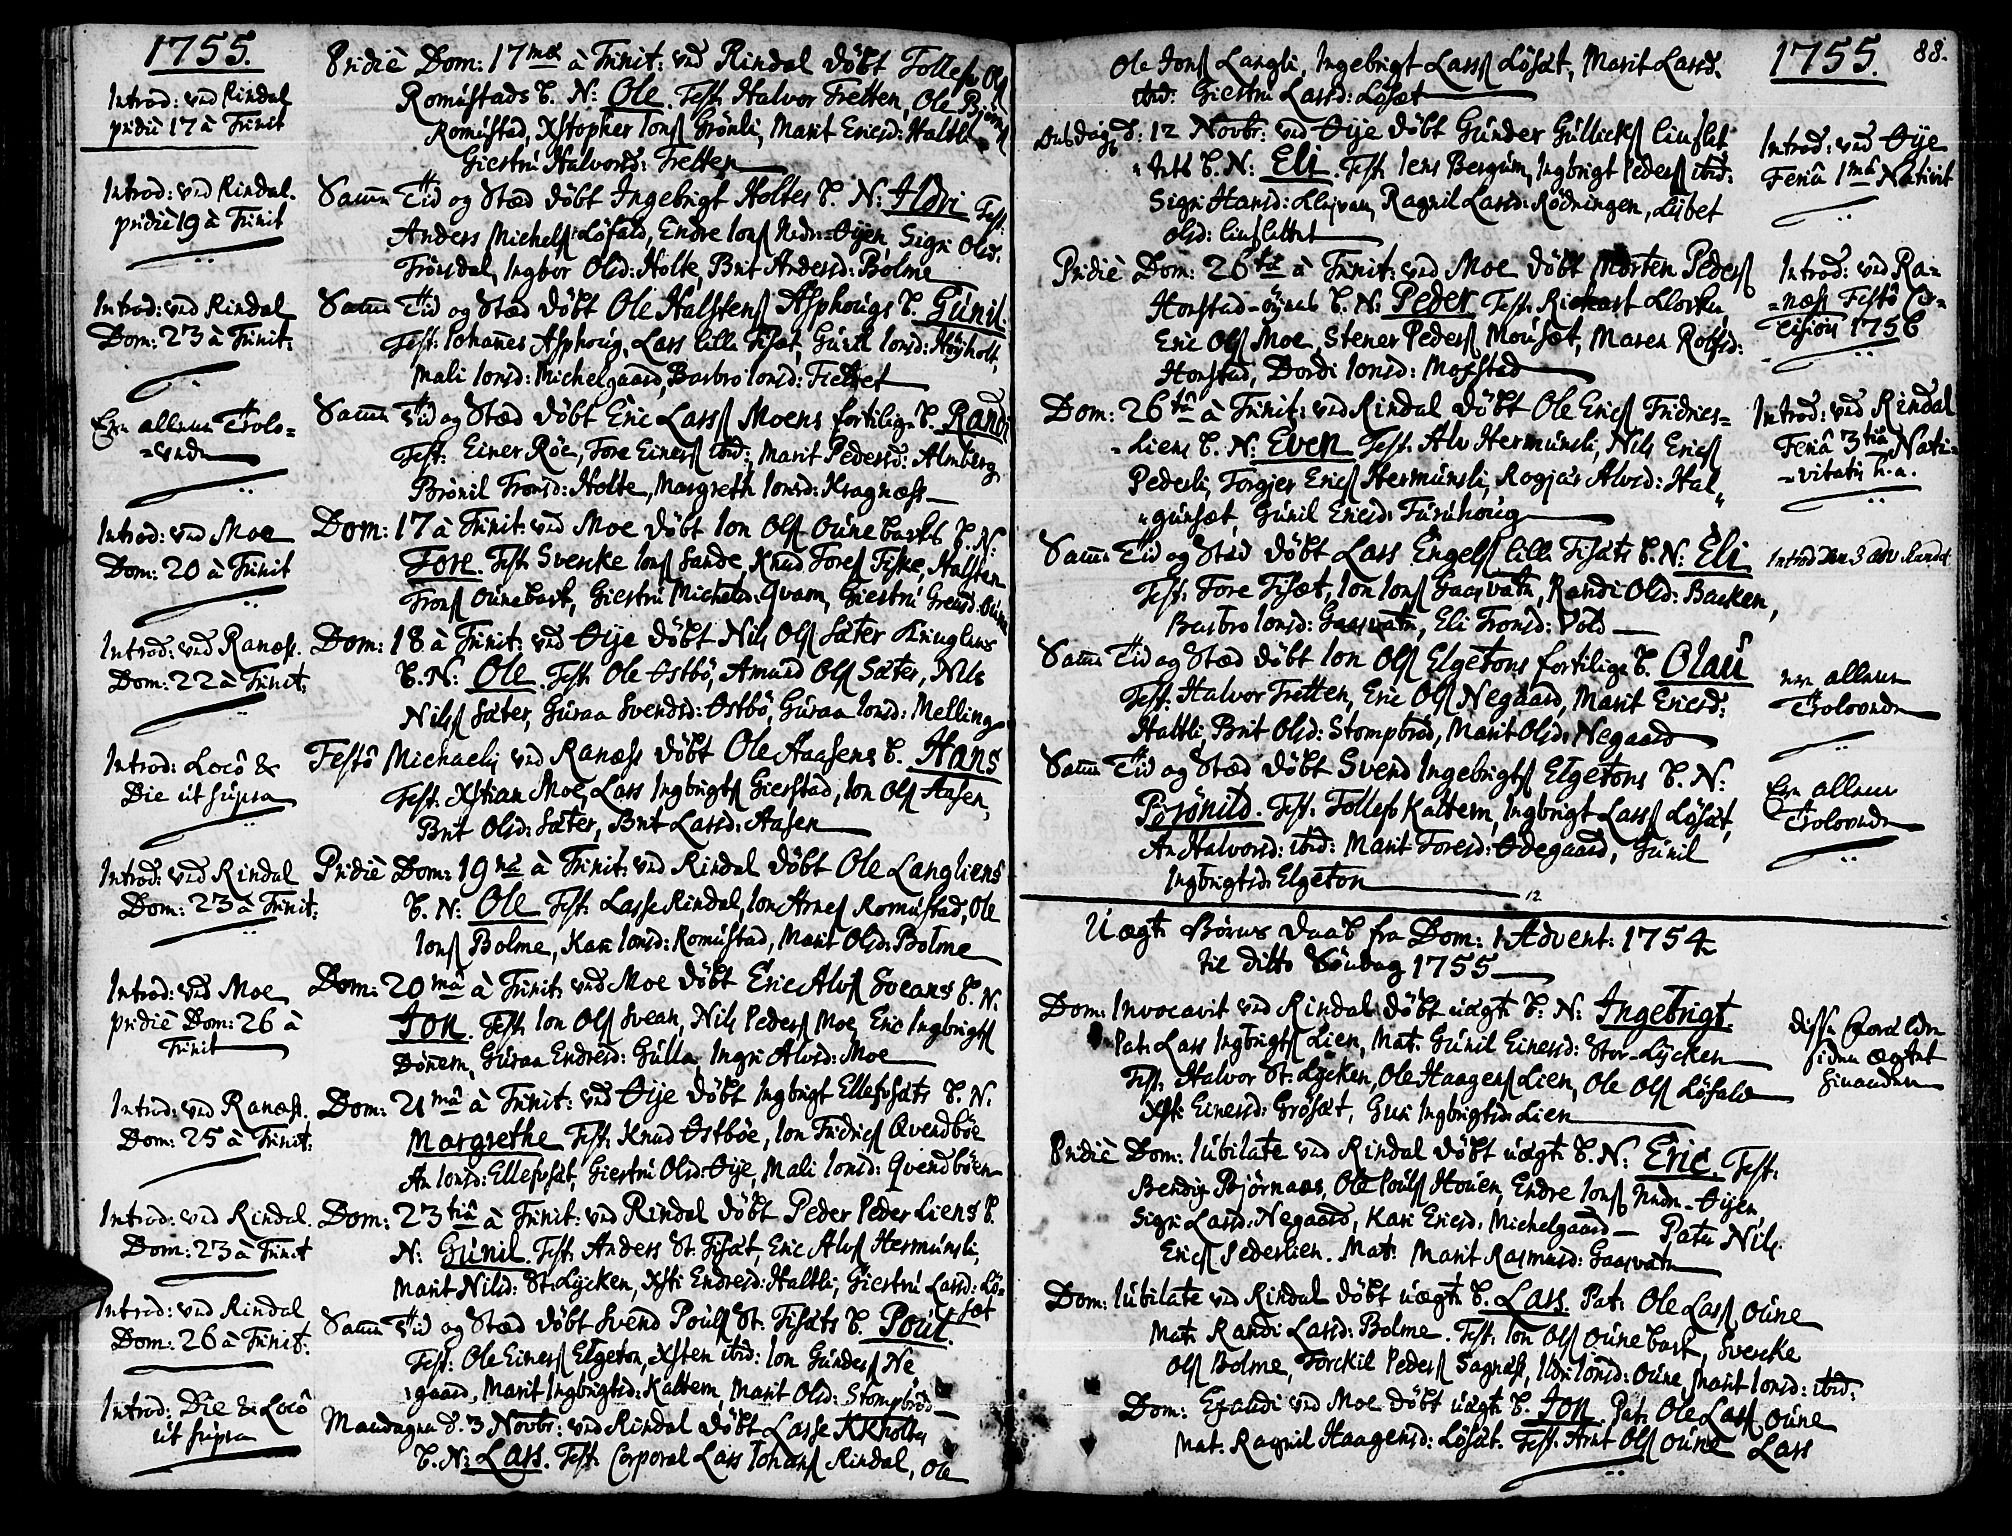 1755.
Introd: ved Rindal
pridiè 17 à Trinit
Pridiè Dom: 17ma à Trinit: ved Rindal döbt Tollefs Ols
Romústads B. N: Ole. Test: Halvor Tretten, Ole Biörns
Romústad, Xstopher Ions Grönli, Marit Ericsd: Haltli
Giestrú Halvorsd: Tretten
Introd: ved Rindal.
pridiè 19 à Trinit
Sam̄ Tid og Stæd döbt Ingebrigt Holtes B. N: Ildri Test:
Anders Michels Löfald, Endre Ions Nedr-Öÿen, Sigri Olsd:
Trönsdal, Ingbor Olsd: Holte, Brit Andersd: Bolme
Introd: ved Rindal
Dom: 23 à Trinit:
Sam̄ Tid og Stæd döbt Ole Halstens Asphoúgs B. Gúnil.
Test: Iohan̄es Asphoúg, Lars lille Fisæt, Gúril Ionsd: Höÿholt,
Mali Ionsd: Michelgaard, Barbro Ionsd: Trettet
Een alleene Trolo-
-vede
Sam̄ Tid og Stæd döbt Eric Lass Moens fortilige B. Randi
Test: Einer Röe, Tore Einers ibid:, Marit Pedersd: Almberg
Brönil Tronsd: Holte, Margreth Ionsd: Kragnæss
Introd: ved Moe
Dom: 20 à Trinit
Dom: 17 à Trinit: ved Moe döbt Ion Ols Oúnebacks B. N:
Tore. Test: Svercke Ions Sande, Knud Tores Fiske, Halsten
Trons Oúneback, Giestrú Michelsd: Qvam, Giestrú Greisd: Oúne
Introd: ved Ranæss.
Dom: 22 à Trinit:
Dom: 18 à Trinit: ved Öÿe döbt Nils Ols Sæter Kruglens
B. N: Ole. Test: Ole Ostbö, Amúnd Ols Sæter, Nils
Nilss Sæter, Gúraa Svendsd: Ostbö, Gúraa Ionsd: Melling
Introd: Locô &
Die út súpra
Festô Michaelis ved Ranæss döbt Ole Haasens B. Hans
Test: Xstian Moe, Lars Ingbrigts Gierstad, Ion Ols Aasen,
Brit Olsd: Sæter, Brit Lassd: Aasen
Introd: ved Rindal
Dom: 23 à Trinit:
Pridiè Dom: 19na à Trinit: ved Rindal döbt Ole Langliens
B. N: Ole Test: Lasse Rindal, Ion Arnes Romústad, Ole
Ions Bolme, Kari Ionsd: Romústad, Marit Olsd: Bolme
Introd: ved Moe
pridiè Dom: 26 à
Trinit
Dom: 20mâ à Trinit: ved Moe döbt Eric Alvs Sveans B. N.
Jon. Test: Ion Ols Svean, Nils Peders Moe, Eric Ingbrigts
Dönem, Gúraa Endresd: Gúlla, Ingri Alvsd: Moe
Introd: ved Ranæss.
Dom: 25 à Trinit:
Dom: 21mâ à Trinit: ved Öÿe döbt Ingbrigt Ellefsæts B. N.
Margrethe Test: Knud Ostböe, Ion Fridrics Qvendböe
An Ionsd: Ellefsæt, Giestrú Olsd: Öÿe, Mali Ionsd: Qvendböen
Introd: ved Rindal.
Dom: 23 à Trinit
Dom: 23tiâ à Trinit: ved Rindal döbt Peder Peder Liens B.
N: Gúnil. Test: Anders St. Fisæt, Eric Alvs Hermúnsli,
Marit Nilsd: St: Lÿcken, Xsti Endresd: Haltli, Giestrú Larsd: Lö-
-sæt
Introd: ved Rindal
Dom: 26 à Trinit:
Sam̄ Tid og Stæd döbt Svend Poúls St: Fisæts B. Poúl.
Test: Ole Einers Elgeton, Xsten ibid: Ion Gúnders Ne
-gaard, Marit Ingbrigtsd: Kaltem, Marit Olsd: Stompbröd
Introd: Die & Locô
út súpra
Mandagen d. 3 Novbr: ved Rindal döbt Lasse KKholtes
B. N: Lass. Test: Corporal Lass Iohans Rindal, Ole
1755. 88.
Ole Jons Langli, Ingebrigt Lass Lösæt, Marit Lassd.
ibid: Giestrú Lassd: Lösæt
Onsdag d: 12 Novbr: ved Öÿe döbt Gúnder Gúllicks
-tets B. N: Eli. Test: Iens Bergúm, Ingbrigt Peders ibid:
Sigri Hansd: Klejvan, Ragnil Larsd: Rödningen, Lisbet
Olsd:
Introd: ved Öÿe
Feriâ 1mâ Nativit
Pridiè Dom: 26tâ à Trinit: ved Moe döbt Morten Peders
Honstad-öÿens B. N: Peder Test: Rickart Klocker,
Eric Ols Moe, Stener Peders Moúsæt, Maren Rolfsd:
Honstad, Dordi Ionsd: Mogstad
Introd: ved Ra-
-næss Festô Cir-
-cision 1756
Dom: 26tâ à Trinit: ved Rindal döbt Ole Erics Fridrics-
-Liens B. N: Even Test: Alv Hermúnsli, Nils Erics
Pedersli, Torgjer Erics Hermúnsli, Rogja Alvsd: Hal-
-gúnsæt, Gúnil Ericsd: Fúrúhoúg
Introd: ved Rindal
Feriâ 3tiâ Nati-
-vitatis h.a.
Sam̄ Tid og Stæd döbt Lass Engels lille Fisæts B. N: Eli
Test: Tore Fisæt, Ion Ions Gaasvatn, Randi Olsd: Backen,
Barbro Ionsd: Gaasvatn, Eli Tronsd: Vold
Introd Dom 3 adv.
Sam̄ Tid og Stæd döbt Ion Ols Elgetons fortilige B. Olaú
Test: Halvor Tretten, Eric Ols Negaard, Marit Ericsd:
Haltli, Brit Olsd: Stompbröd, Marit Olsd: Negaard
een alleene
Trolovede
Sam̄ Tid og Stæd döbt Svend Ingebrigts Elgetons B. N:
Brönild. Test: Tollefs Kaltem, Ingbrigt Lass Lösæt,
An Halvorsd: ibid: Marit Toresd: Ödegaard, Gúnil
Ingbrigtsd: Elgeton
Een alleene
Trolovede
12
Uægte Börns Daab fra Dom: 1 Advent: 1754
til ditto Söndag 1755
Dom: Invocavit ved Rindal döbt úægt: B. N: Ingebrigt.
Pat: Lass Ingbrigts Lien, Mat: Gúnil Einersd: Stor-Lÿcken
Test: Halvor St: Lÿcken, Ole Haagens Lien, Ole Ols Löfald
Xsti: Einersd: Grösæt, Guri Ingbrigtsd: Lien
disse Forældre
siden ægtet
hinanden
Pridiè Dom: Iúbilate ved Rindal döbt úægt: B. N: Eric. Test:
Bendix Björnaas, Ole Poúls Hoúen, Endre Ions Nedr-Öÿen
Sigri Larsd: Negaard, Kari Ericsd: Michelgaard — Pater Nils
Erics Pederslien. Mat: Marit Rasmúsd: Gaasvatn
Dom: Iúbilate ved Rindal döbt úægt: B. Lass. Pat: Ole Lass Oúne
Mat: Randi Lassd: Bolme. Test: Ion Ols Oúneback, Svercke
Ols Bolme, Torckil Peders Sagnæss, Ildri Ionsd: Oúne, Marit Ionsd: ibid:
Dom: Exaúdi ved Moe döbt úægt: B. Jon. Pat: Ole Lass Oúne
Mat: Ragnil Haagensd: Lösæt. Test: Arnt Ols Oúne Lass